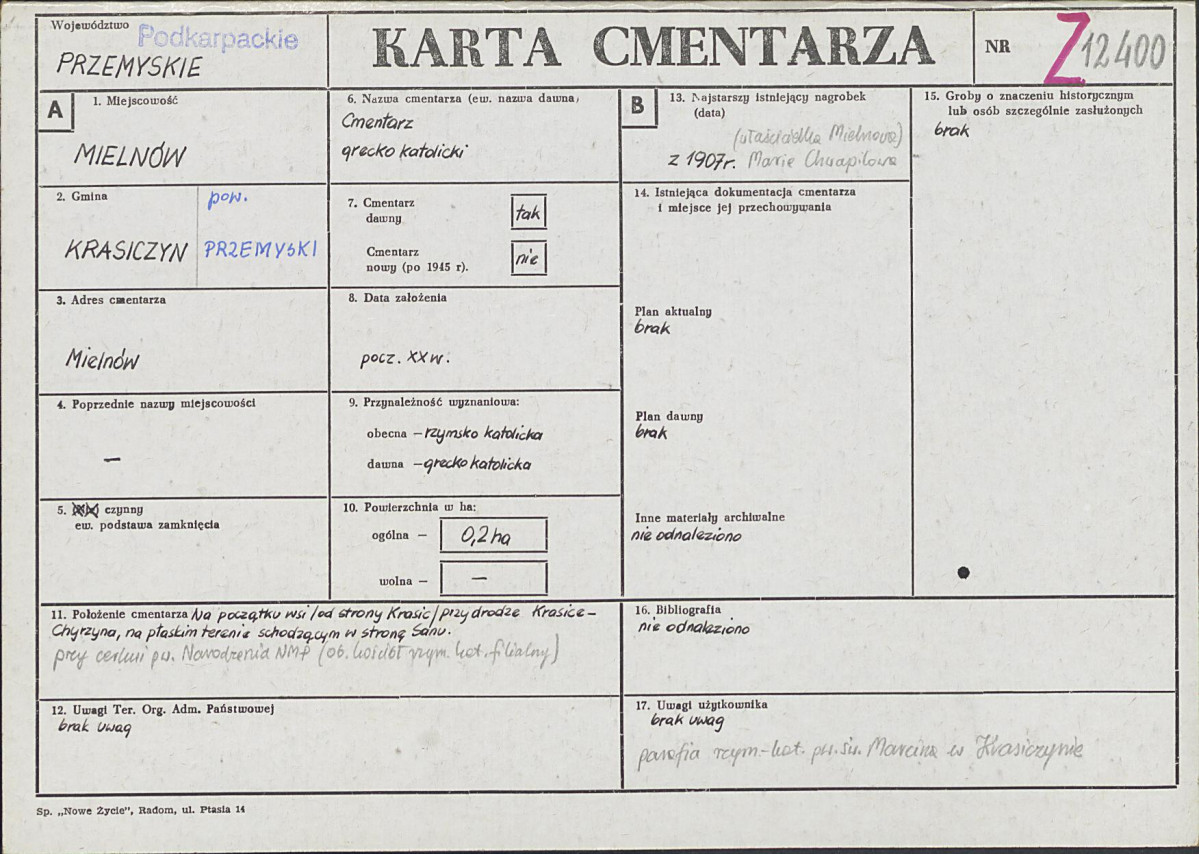 Województwo
Podkarpackie
PRZEMYSKIE
KARTA CMENTARZA
NR
Z 12400
A
1. Miejscowość
MIELNÓW
2. Gmina
pow.
KRASICZYN
PRZEMYSKI
3. Adres cmentarza
Mielnów
4. Poprzednie nazwy miejscowości
—
5. czynny
ew. podstawa zamknięcia
6. Nazwa cmentarza (ew. nazwa dawna)
Cmentarz
grecko katolicki
7. Cmentarz
dawny
tak
Cmentarz
nowy (po 1945 r).
nie
8. Data założenia
pocz. XX w.
9. Przynależność wyznaniowa:
obecna – rzymsko katolicka
dawna – grecko katolicka
10. Powierzchnia w ha:
ogólna – 0,2 ha
wolna – —
B
13. Najstarszy istniejący nagrobek
(data)
(właścicielka Mielnowa)
z 1907r. Marie Chwapilowa
14. Istniejąca dokumentacja cmentarza
i miejsce jej przechowywania
Plan aktualny
brak
Plan dawny
brak
Inne materiały archiwalne
nie odnaleziono
15. Groby o znaczeniu historycznym
lub osób szczególnie zasłużonych
brak
11. Położenie cmentarza Na początku wsi /od strony Krasic/ przy drodze Krasice –
Chyrzyna, na płaskim terenie schodzącym w stronę Sanu.
przy cerkwi pw. Narodzenia NMP (ob. kościół rzym. kat. filialny)
12. Uwagi Ter. Org. Adm. Państwowej
brak uwag
16. Bibliografia
nie odnaleziono
17. Uwagi użytkownika
brak uwag
parafia rzym-kat. pw. św. Marcina w Krasiczynie
Sp. „Nowe Życie”, Radom, ul. Ptasia 14